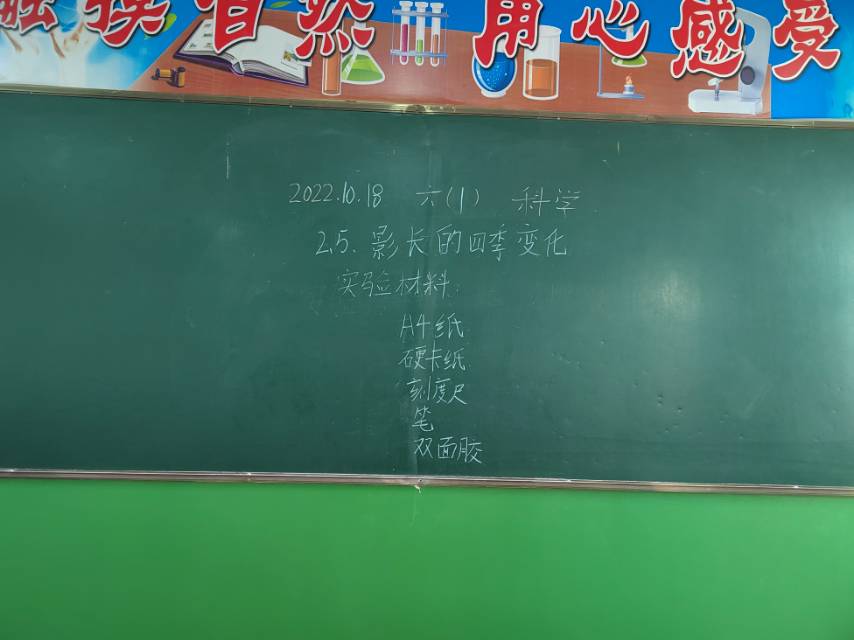 触摸自然 用心感受
2022.10.18 六(1) 科学
2.5. 影长的四季变化
实验材料:
A4纸
硬卡纸
刻度尺
笔
双面胶